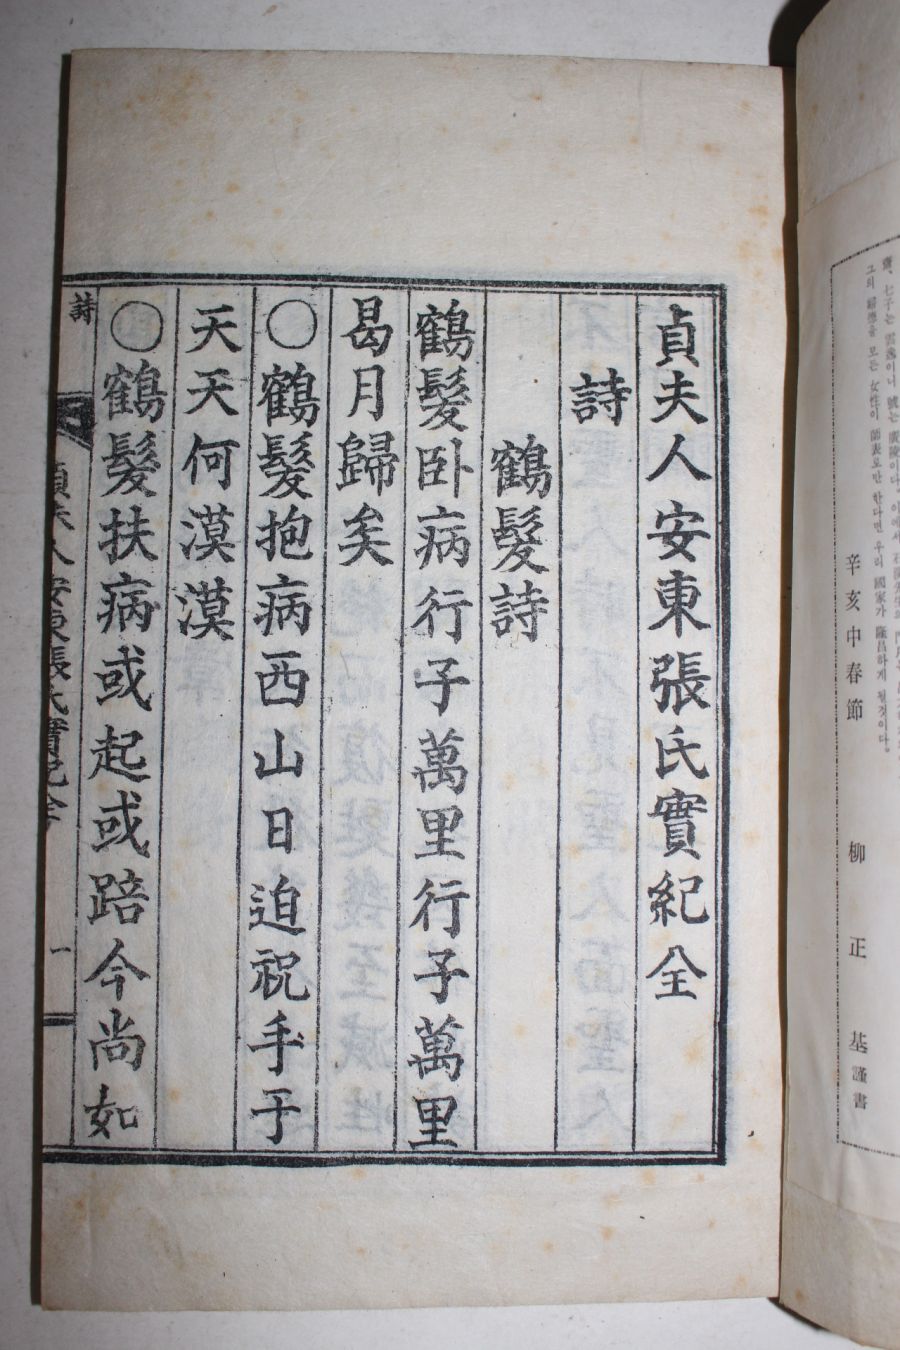 貞夫人安東張氏實紀全
詩
鶴髮詩
鶴髮卧病行子萬里行子萬里
曷月歸矣
○鶴髮抱病西山日迫祝手于
天天何漠漠
○鶴髮扶病或起或踣今尚如
詩
夫人安東張氏實紀全
一
七子는
그의 를 모든 女性이 師表로만 한다면 우리 國家가 隆昌하게 될것이다.
辛亥中春節
柳正基謹書